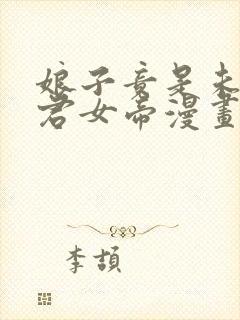 娘子竟是未
君女帝漫畫
李頡